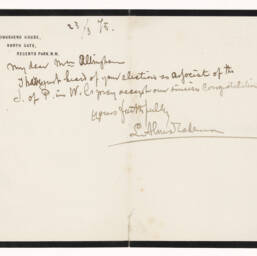 23/3/75.
TOWNSHEND HOUSE,
NORTH GATE,
REGENTS PARK. N.W.
My dear Mrs Allingham
I have just heard of your election as associate of the
S. of P. in W. C. pray accept our sincere congratulations
Yours faithfully
L Alma Tadema